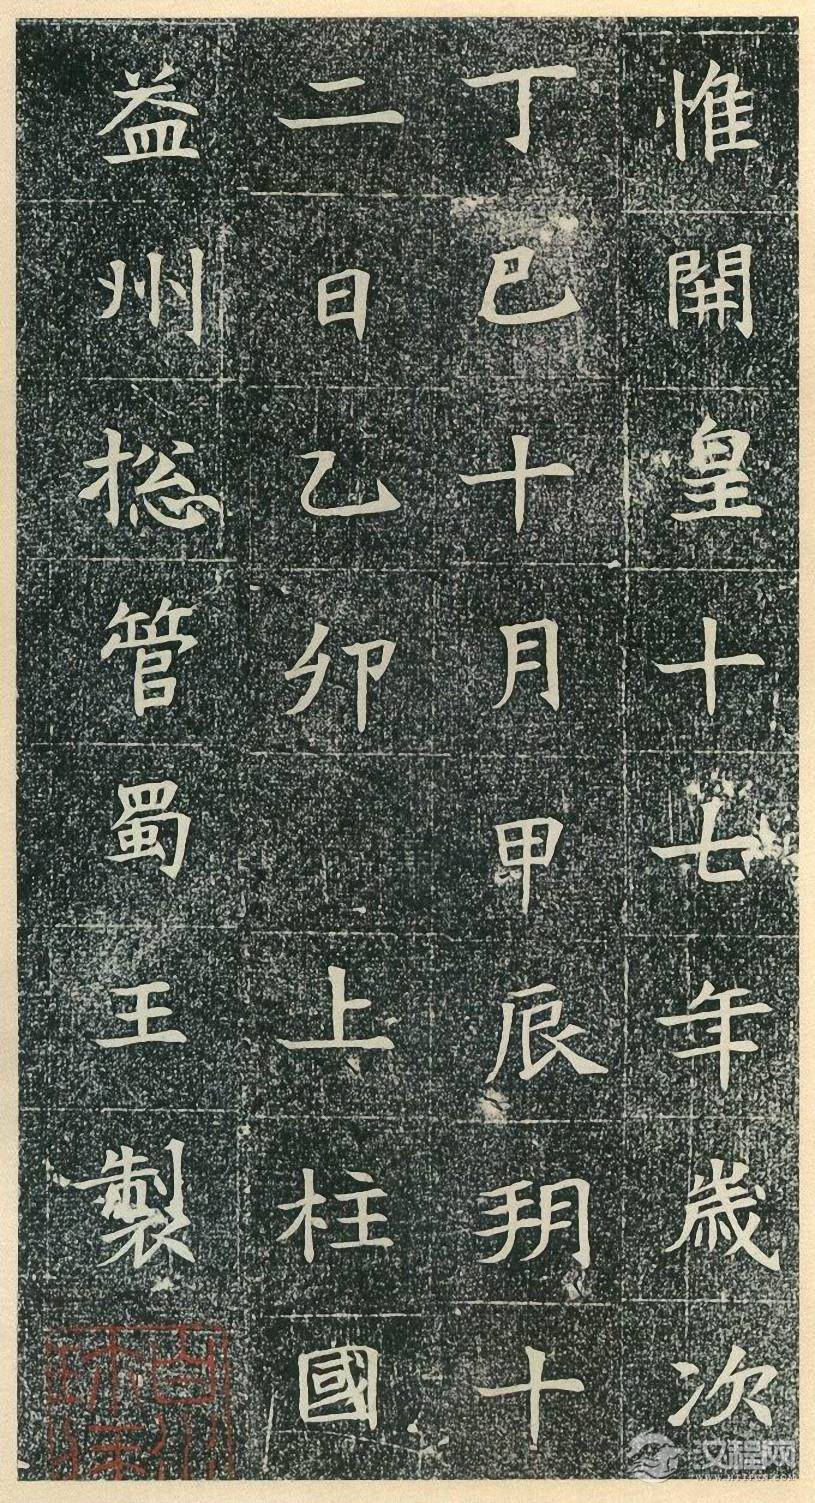 惟開皇十七年歲次
丁巳十月甲辰玥十
二日乙卯 上柱國
益州揔管蜀王製
汉程网